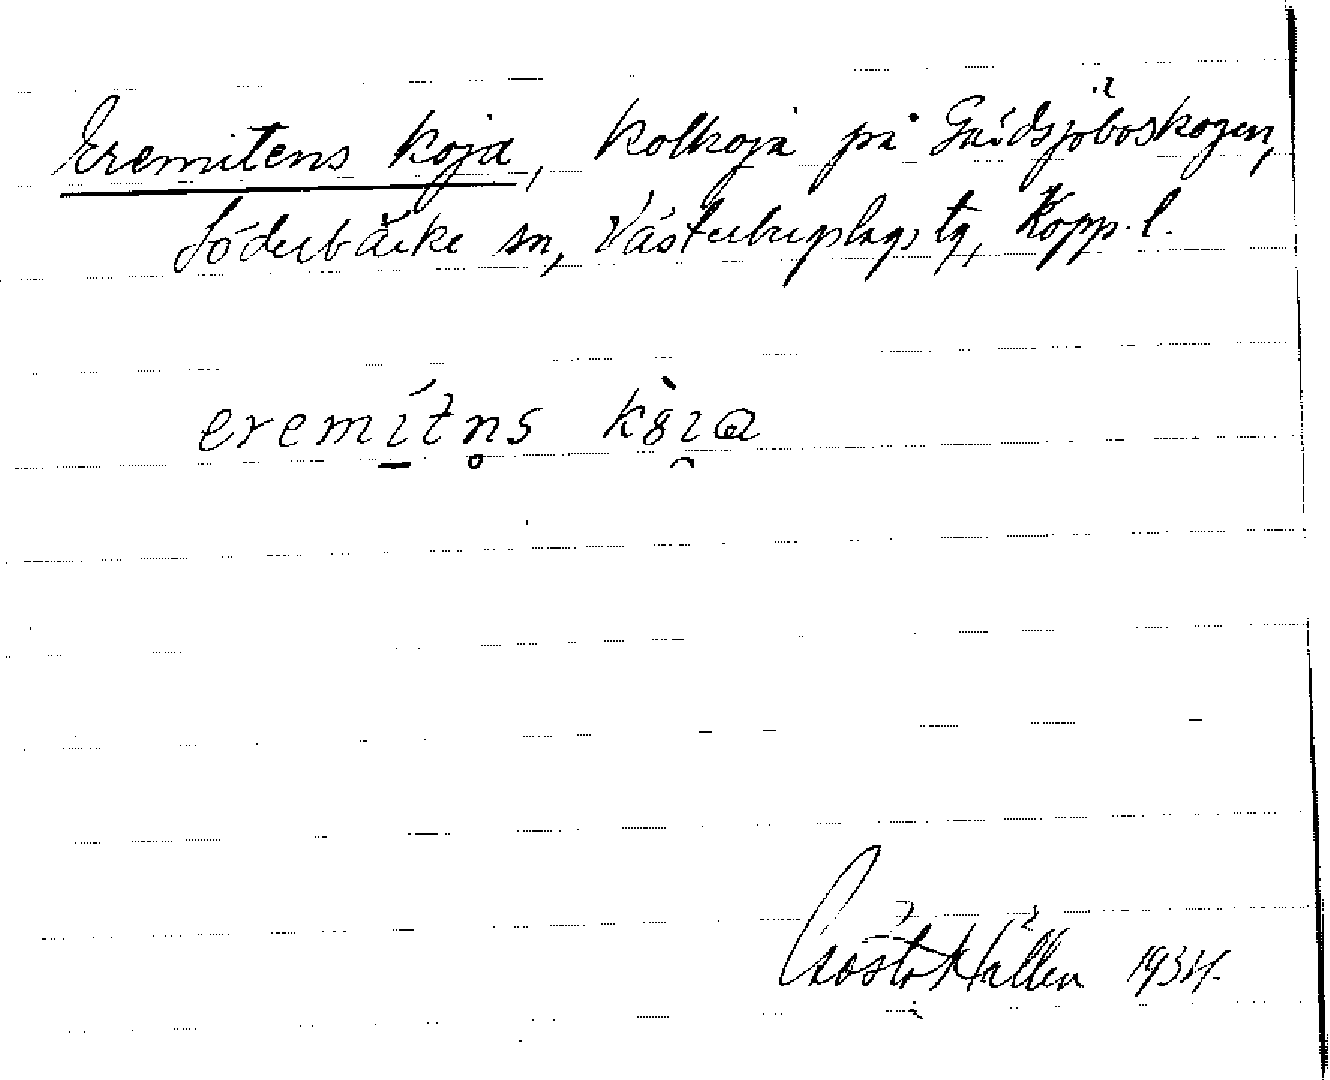 Eremitens koja, kolkoja på Gäddsjöboskogen,
Söderbärke sn, Västerbergslags tg, Kopp. l.
eremítn̥s kòi̯a
Gösta Hallén 1934.